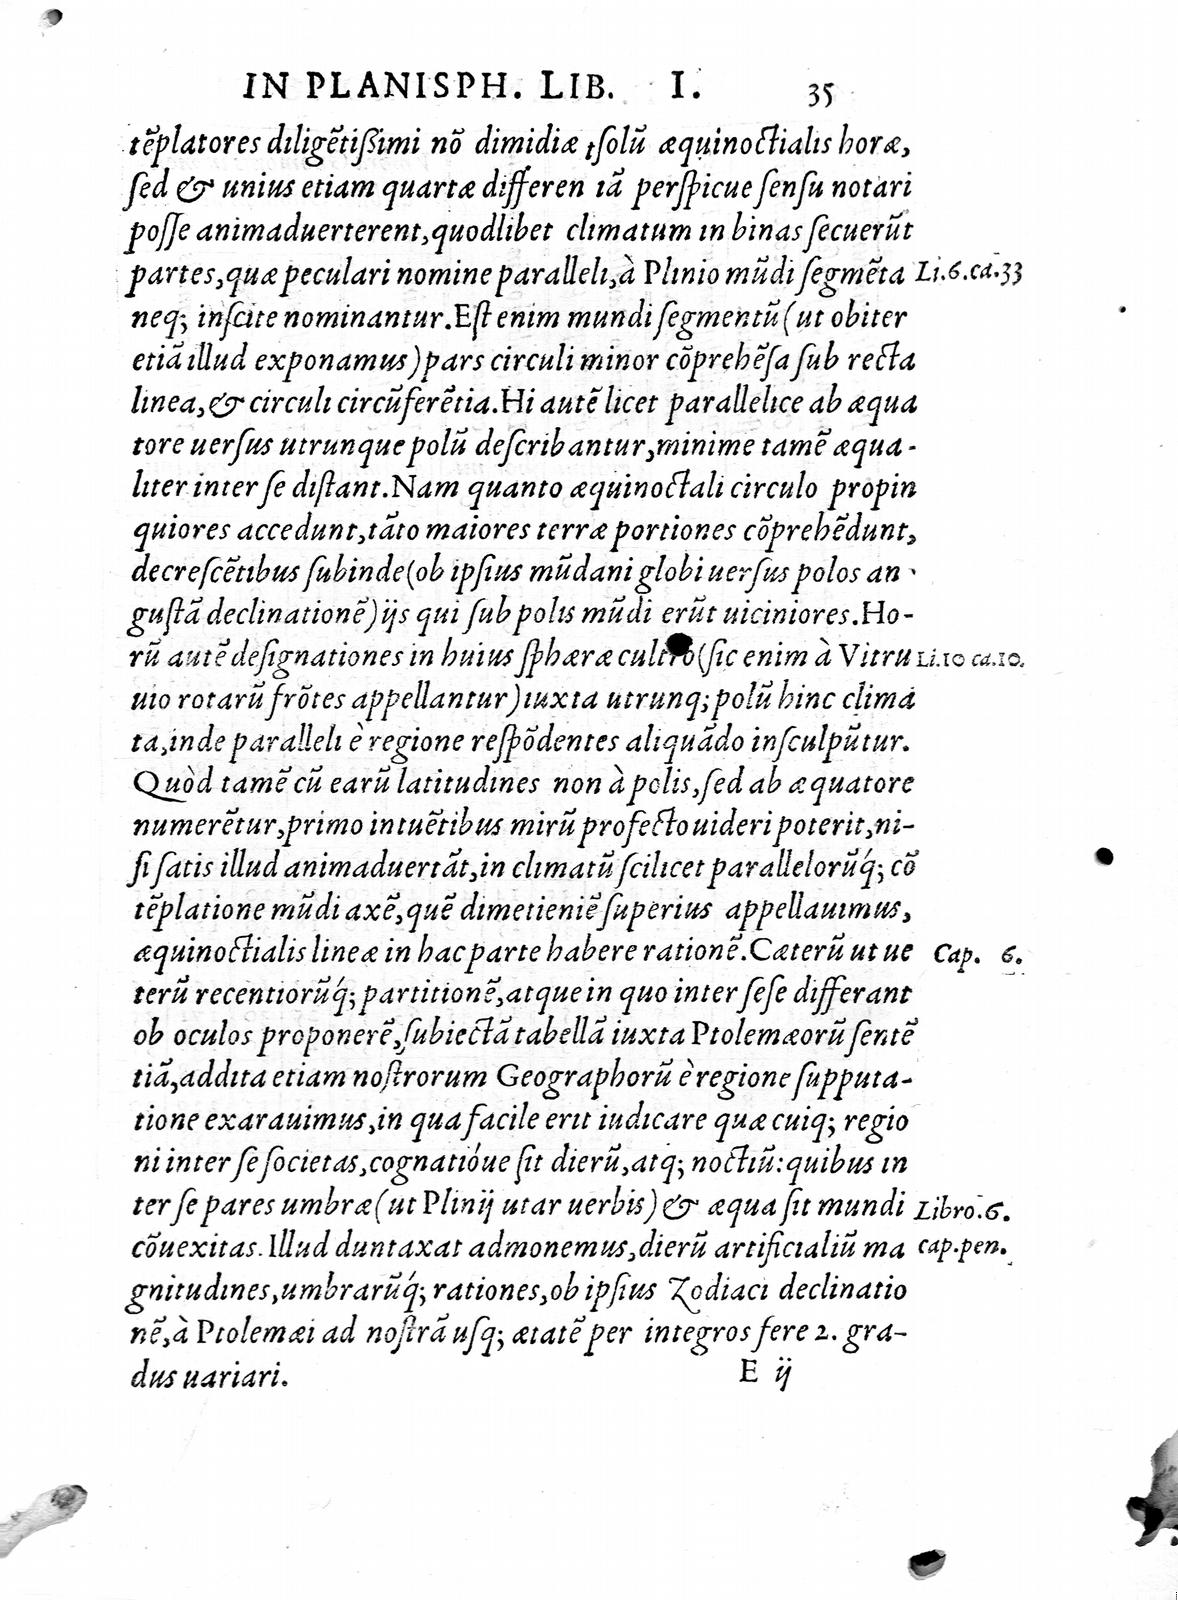 IN PLANISPH. LIB. I. 35
tẽplatores diligẽtißimi nõ dimidiæ tſolũ æquinoctialis horæ,
ſed & unius etiam quartæ differen iã perſpicue ſenſu notari
poſſe animaduerterent,quodlibet climatum in binas ſecuerũt
partes,quæ peculari nomine paralleli,à Plinio mũdi ſegmẽta Li.6.ca.33
neq; inſcite nominantur.Eſt enim mundi ſegmentũ(ut obiter
etiã illud exponamus)pars circuli minor cõprehẽſa ſub recta
linea,& circuli circũferẽtia.Hi autẽ licet parallelice ab æqua
tore uerſus utrunque polũ deſcribantur,minime tamẽ æqua-
liter inter ſe diſtant.Nam quanto æquinoctali circulo propin
quiores accedunt,tãto maiores terræ portiones cõprehẽdunt,
decreſcẽtibus ſubinde(ob ipſius mũdani globi uerſus polos an-
guſtã declinationẽ)ijs qui ſub polis mũdi erũt uiciniores.Ho-
rũ autẽ deſignationes in huius ſphæræ cultro(ſic enim à Vitru Li.10 ca.10.
uio rotarũ frõtes appellantur)iuxta utrunq; polũ hinc clima
ta,inde paralleli è regione reſpõdentes aliquãdo inſculpũtur.
Quòd tamẽ cũ earũ latitudines non à polis,ſed ab æquatore
numerẽtur,primo intuẽtibus mirũ profecto uideri poterit,ni-
ſi ſatis illud animaduertãt,in climatũ ſcilicet parallelorũq́; cõ
tẽplatione mũdi axẽ,quẽ dimetieniẽ ſuperius appellauimus,
æquinoctialis lineæ in hac parte habere rationẽ.Cæterũ ut ue Cap. 6.
terũ recentiorũq́; partitionẽ,atque in quo inter ſeſe differant
ob oculos proponerẽ,ſubiectã tabellã iuxta Ptolemæorũ ſentẽ
tiã,addita etiam noſtrorum Geographorũ è regione ſupputa-
tione exarauimus,in qua facile erit iudicare quæ cuiq; regio
ni inter ſe ſocietas,cognatióue ſit dierũ,atq; noctiũ:quibus in
ter ſe pares umbræ(ut Plinij utar uerbis)& æqua ſit mundi Libro.6.
cõuexitas.Illud duntaxat admonemus,dierũ artificialiũ ma cap.pen.
gnitudines,umbrarũq́; rationes,ob ipſius Zodiaci declinatio
nẽ,à Ptolemæi ad noſtrã uſq; ætatẽ per integros fere 2. gra-
dus uariari. E ij